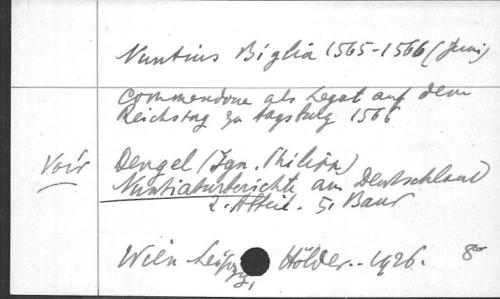 Nuntius Biglia 1565-1566 (Juni)
Commendone als Legat auf dem
Reichstag zu Augsburg 1566
Voir
Dengel (Ign. Philipp)
Nuntiaturberichte aus Deutschland
2. Abteil. 5. Band
Wien Leipzig, Hölder.. 1926. 8°